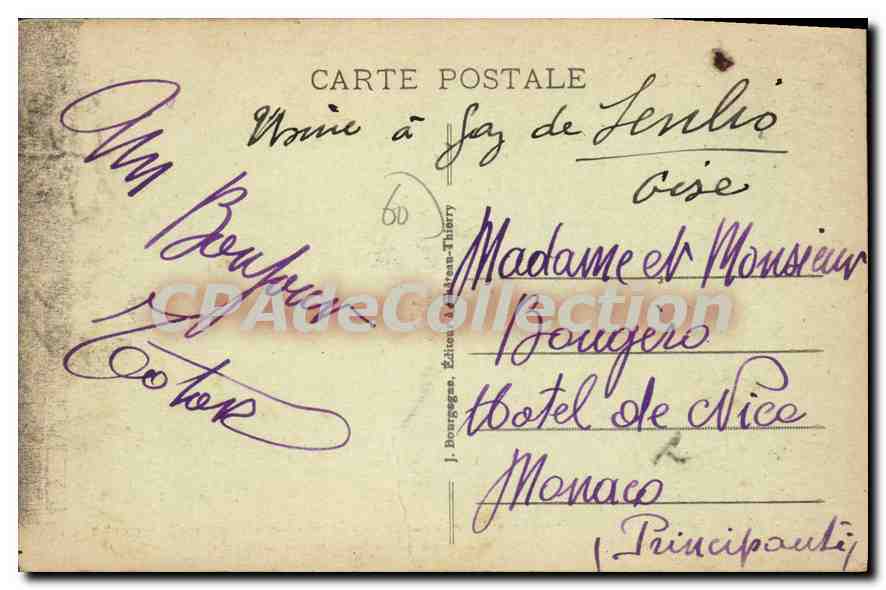 CARTE POSTALE
Usine à Gaz de Senlis
Oise
60
Un
Bonjour
Madame et Monsieur
Bougero
Hotel de Nice
Monaco
(Principauté)
J. Bourgogne, Éditeur à
Thierry
CPAdeCollection